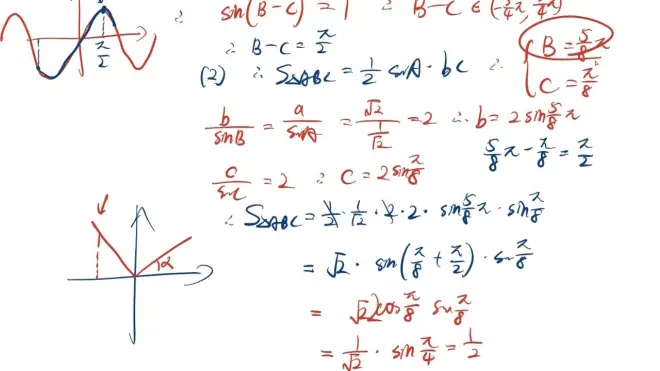 ∴ sin(B-C) = 1 ∴ B-C ∈ (-3/4π, 3/4π)
π/2
∴ B-C = π/2
{ B = 5/8π
C = π/8
(2) ∴ S△ABC = 1/2 sinA · bc ∴
b/sinB = a/sinA = √2/(1/√2) = 2 ∴ b = 2sin5/8π
5/8π - π/8 = π/2
c/sinC = 2 ∴ C = 2sinπ/8
∴ S△ABC = 1/2 · 1/√2 · 2 · 2 · sin5/8π · sinπ/8
= √2 · sin(π/8 + π/2) · sinπ/8
α
= √2 cosπ/8 sinπ/8
= 1/√2 · sinπ/4 = 1/2